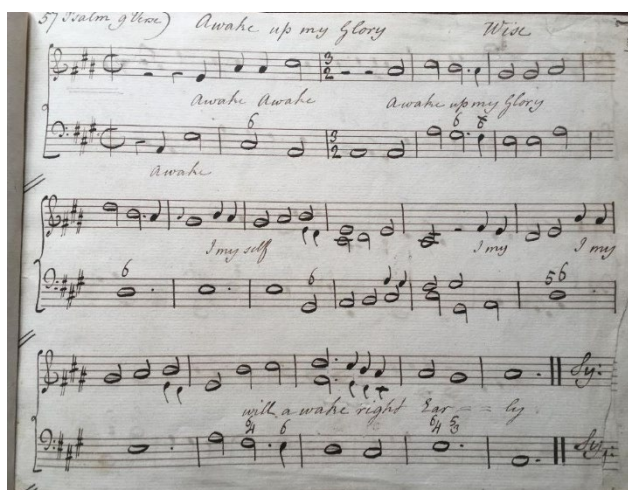 57 Psalm 9 Verse) Awake up my Glory Wise
3 2
Awake Awake Awake up my Glory
6 6 6
3 2
Awake
I my self I my I my
6 6 5 6
will a wake right Ear - - ly
6 6 5
4 3